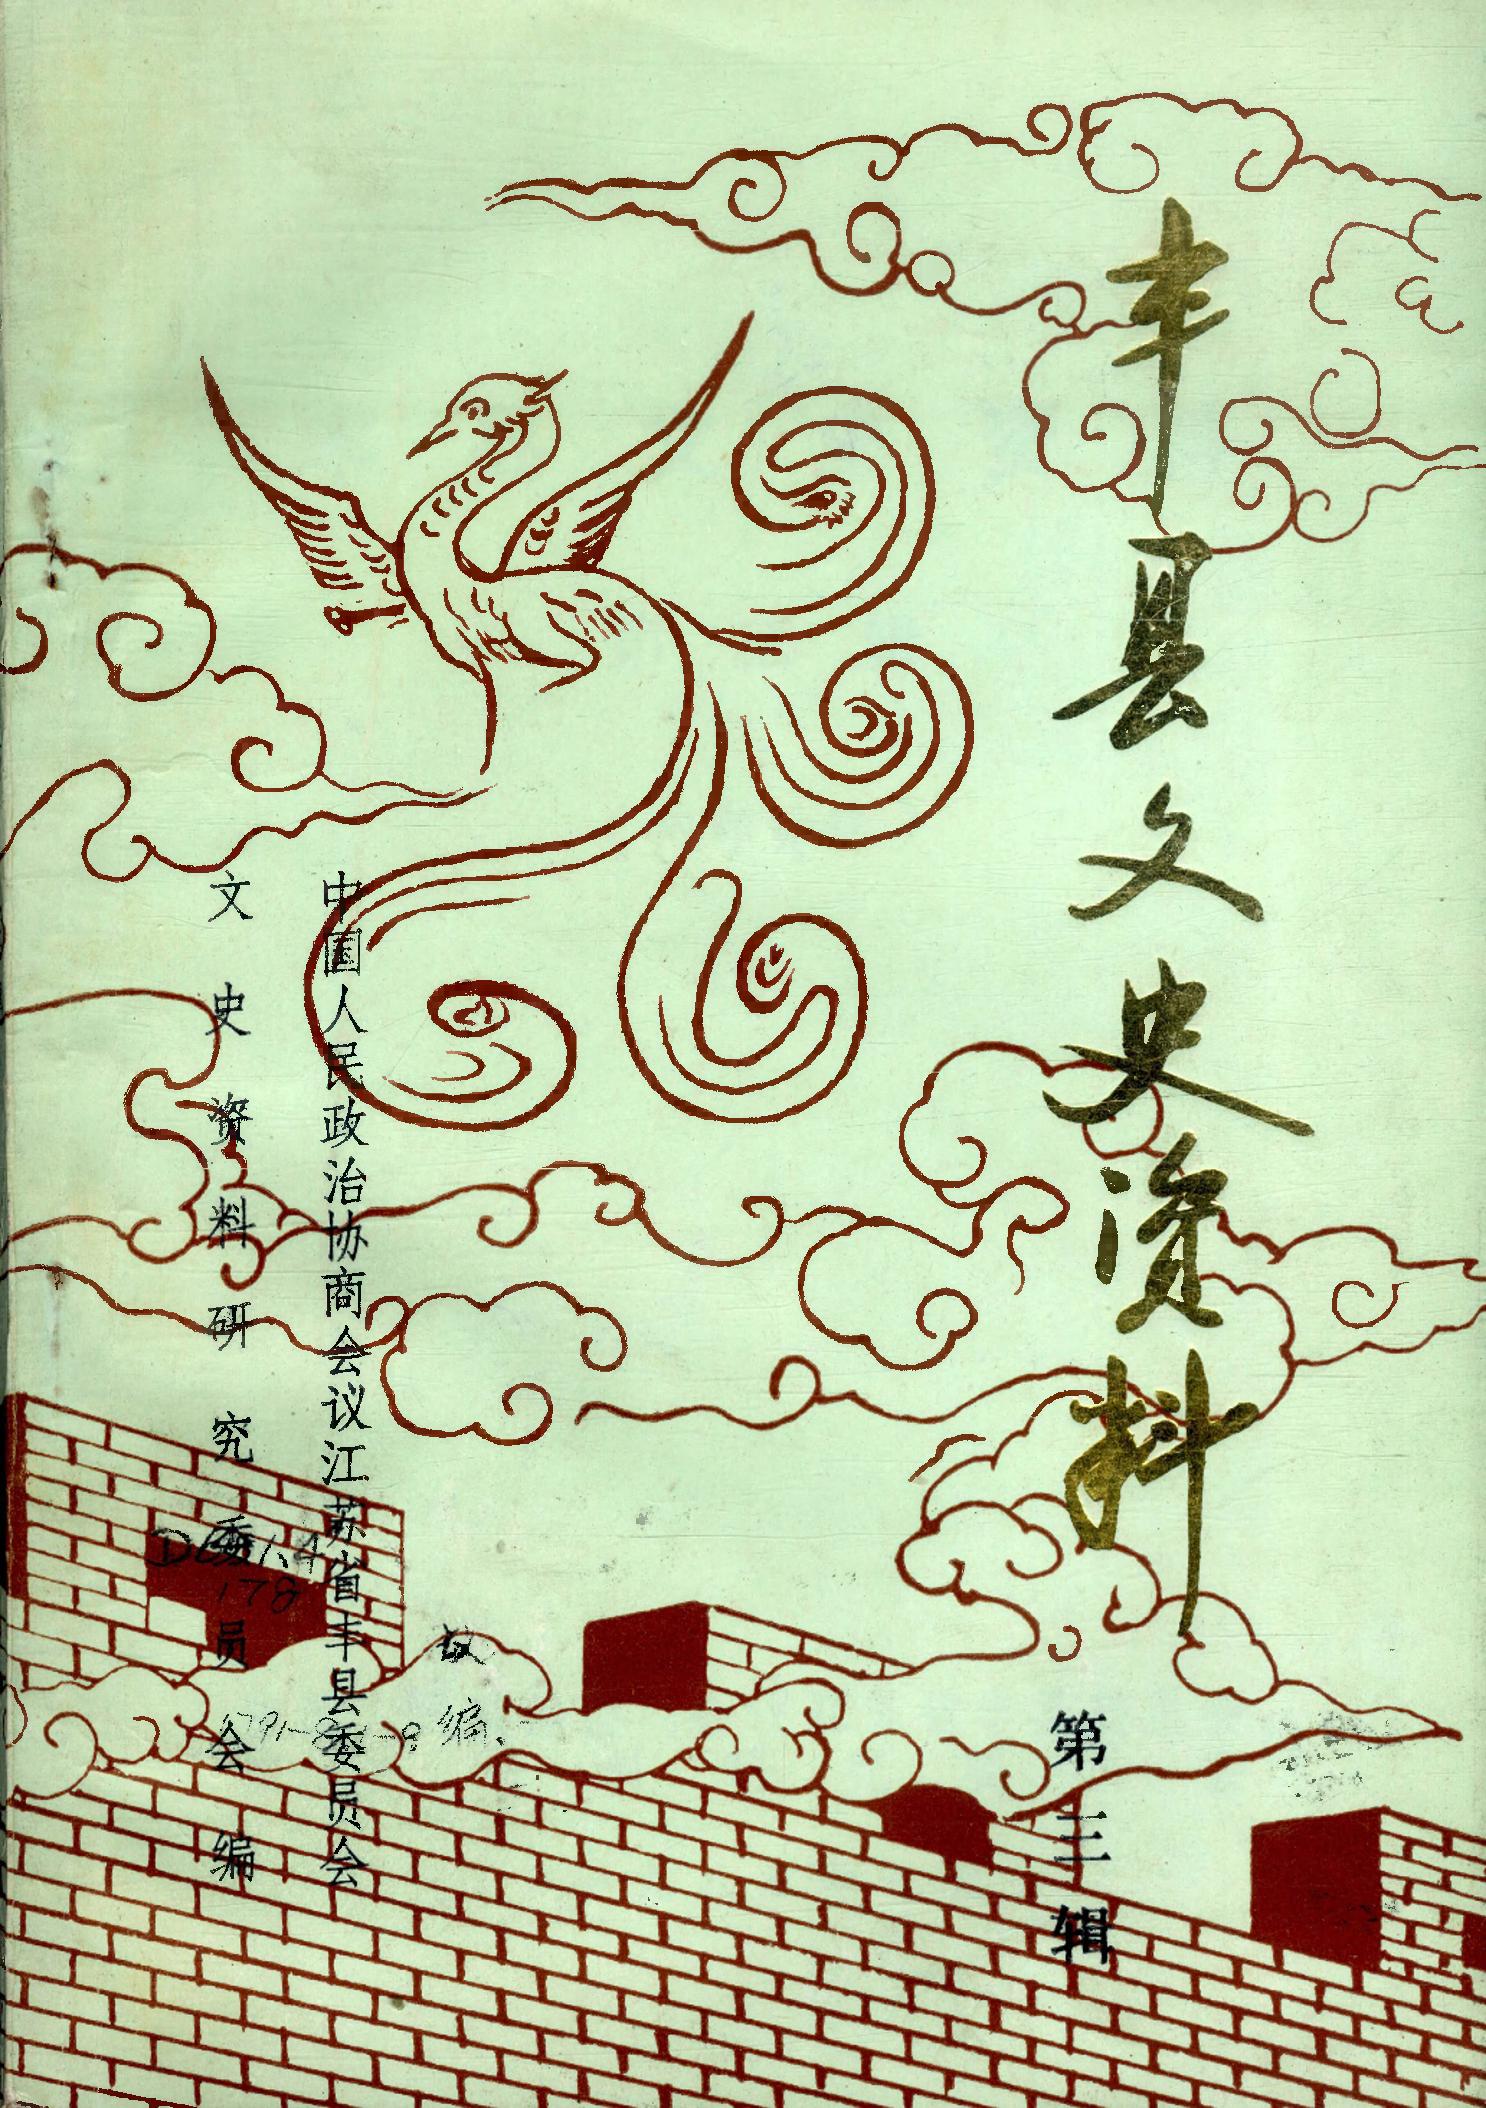 丰县文史资料
第三辑
中国人民政治协商会议江苏省丰县委员会
文史资料研究委员会编
议
编
178